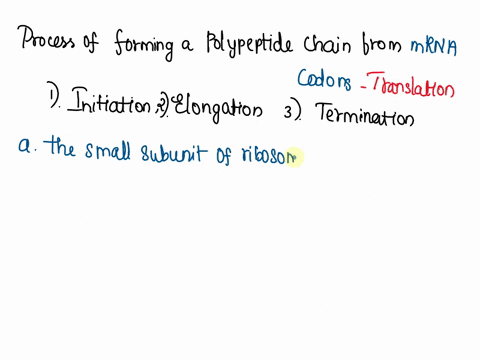 Process of forming a Polypeptide Chain from mRNA
Codons - Translation
1). Initiation 2) Elongation 3). Termination
a. the small subunit of ribosom